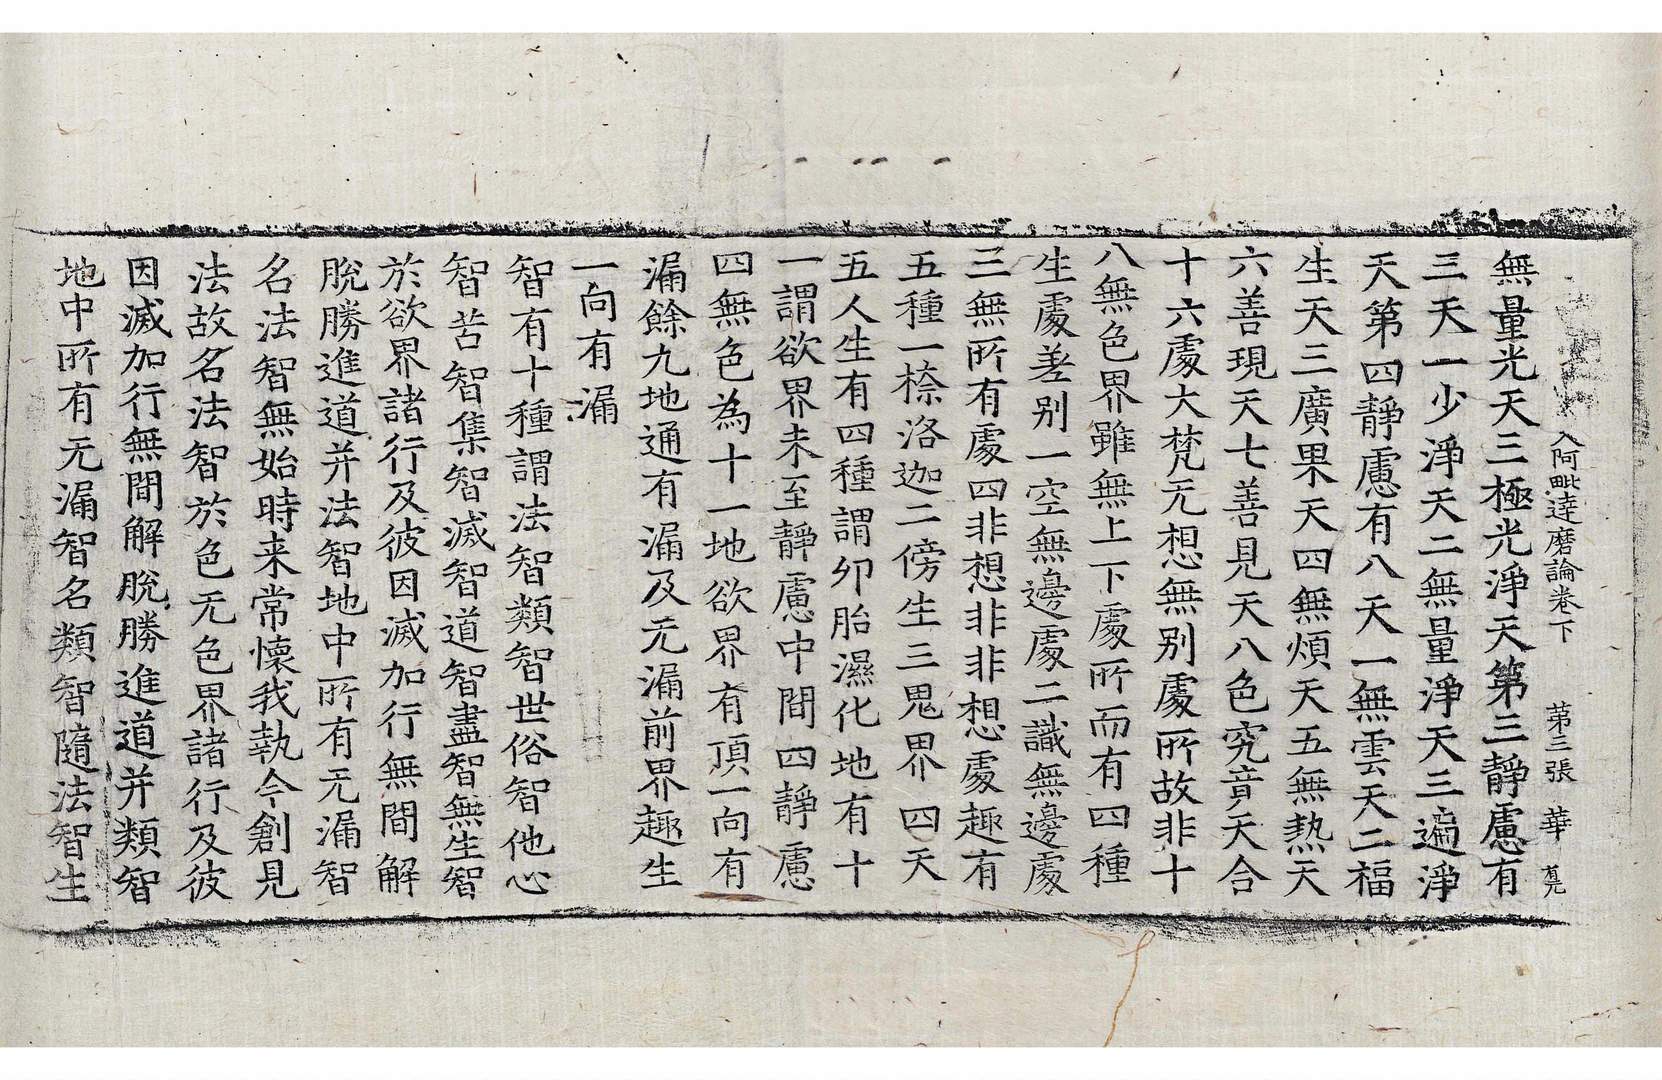 入阿毗達磨論卷下　第三張　華
無量光天三極光淨天第三靜慮有
三天一少淨天二無量淨天三遍淨
天第四靜慮有八天一無雲天二福
生天三廣果天四無煩天五無熱天
六善現天七善見天八色究竟天合
十六處大梵无想無別處所故非十
八無色界雖無上下處所而有四種
生處差别一空無邊處二識無邊處
三無所有處四非想非非想處趣有
五種一㮈洛迦二傍生三鬼界四天
五人生有四種謂卵胎濕化地有十
一謂欲界未至靜慮中間四靜慮
四無色為十一地欲界有頂一向有
漏餘九地通有漏及无漏前界趣生
一向有漏
智有十種謂法智類智世俗智他心
智苦智集智滅智道智盡智無生智
於欲界諸行及彼因滅加行無間解
脫勝進道并法智地中所有无漏智
名法智無始時来常懷我執今創見
法故名法智於色无色界諸行及彼
因滅加行無間解脫勝進道并類智
地中所有无漏智名類智隨法智生